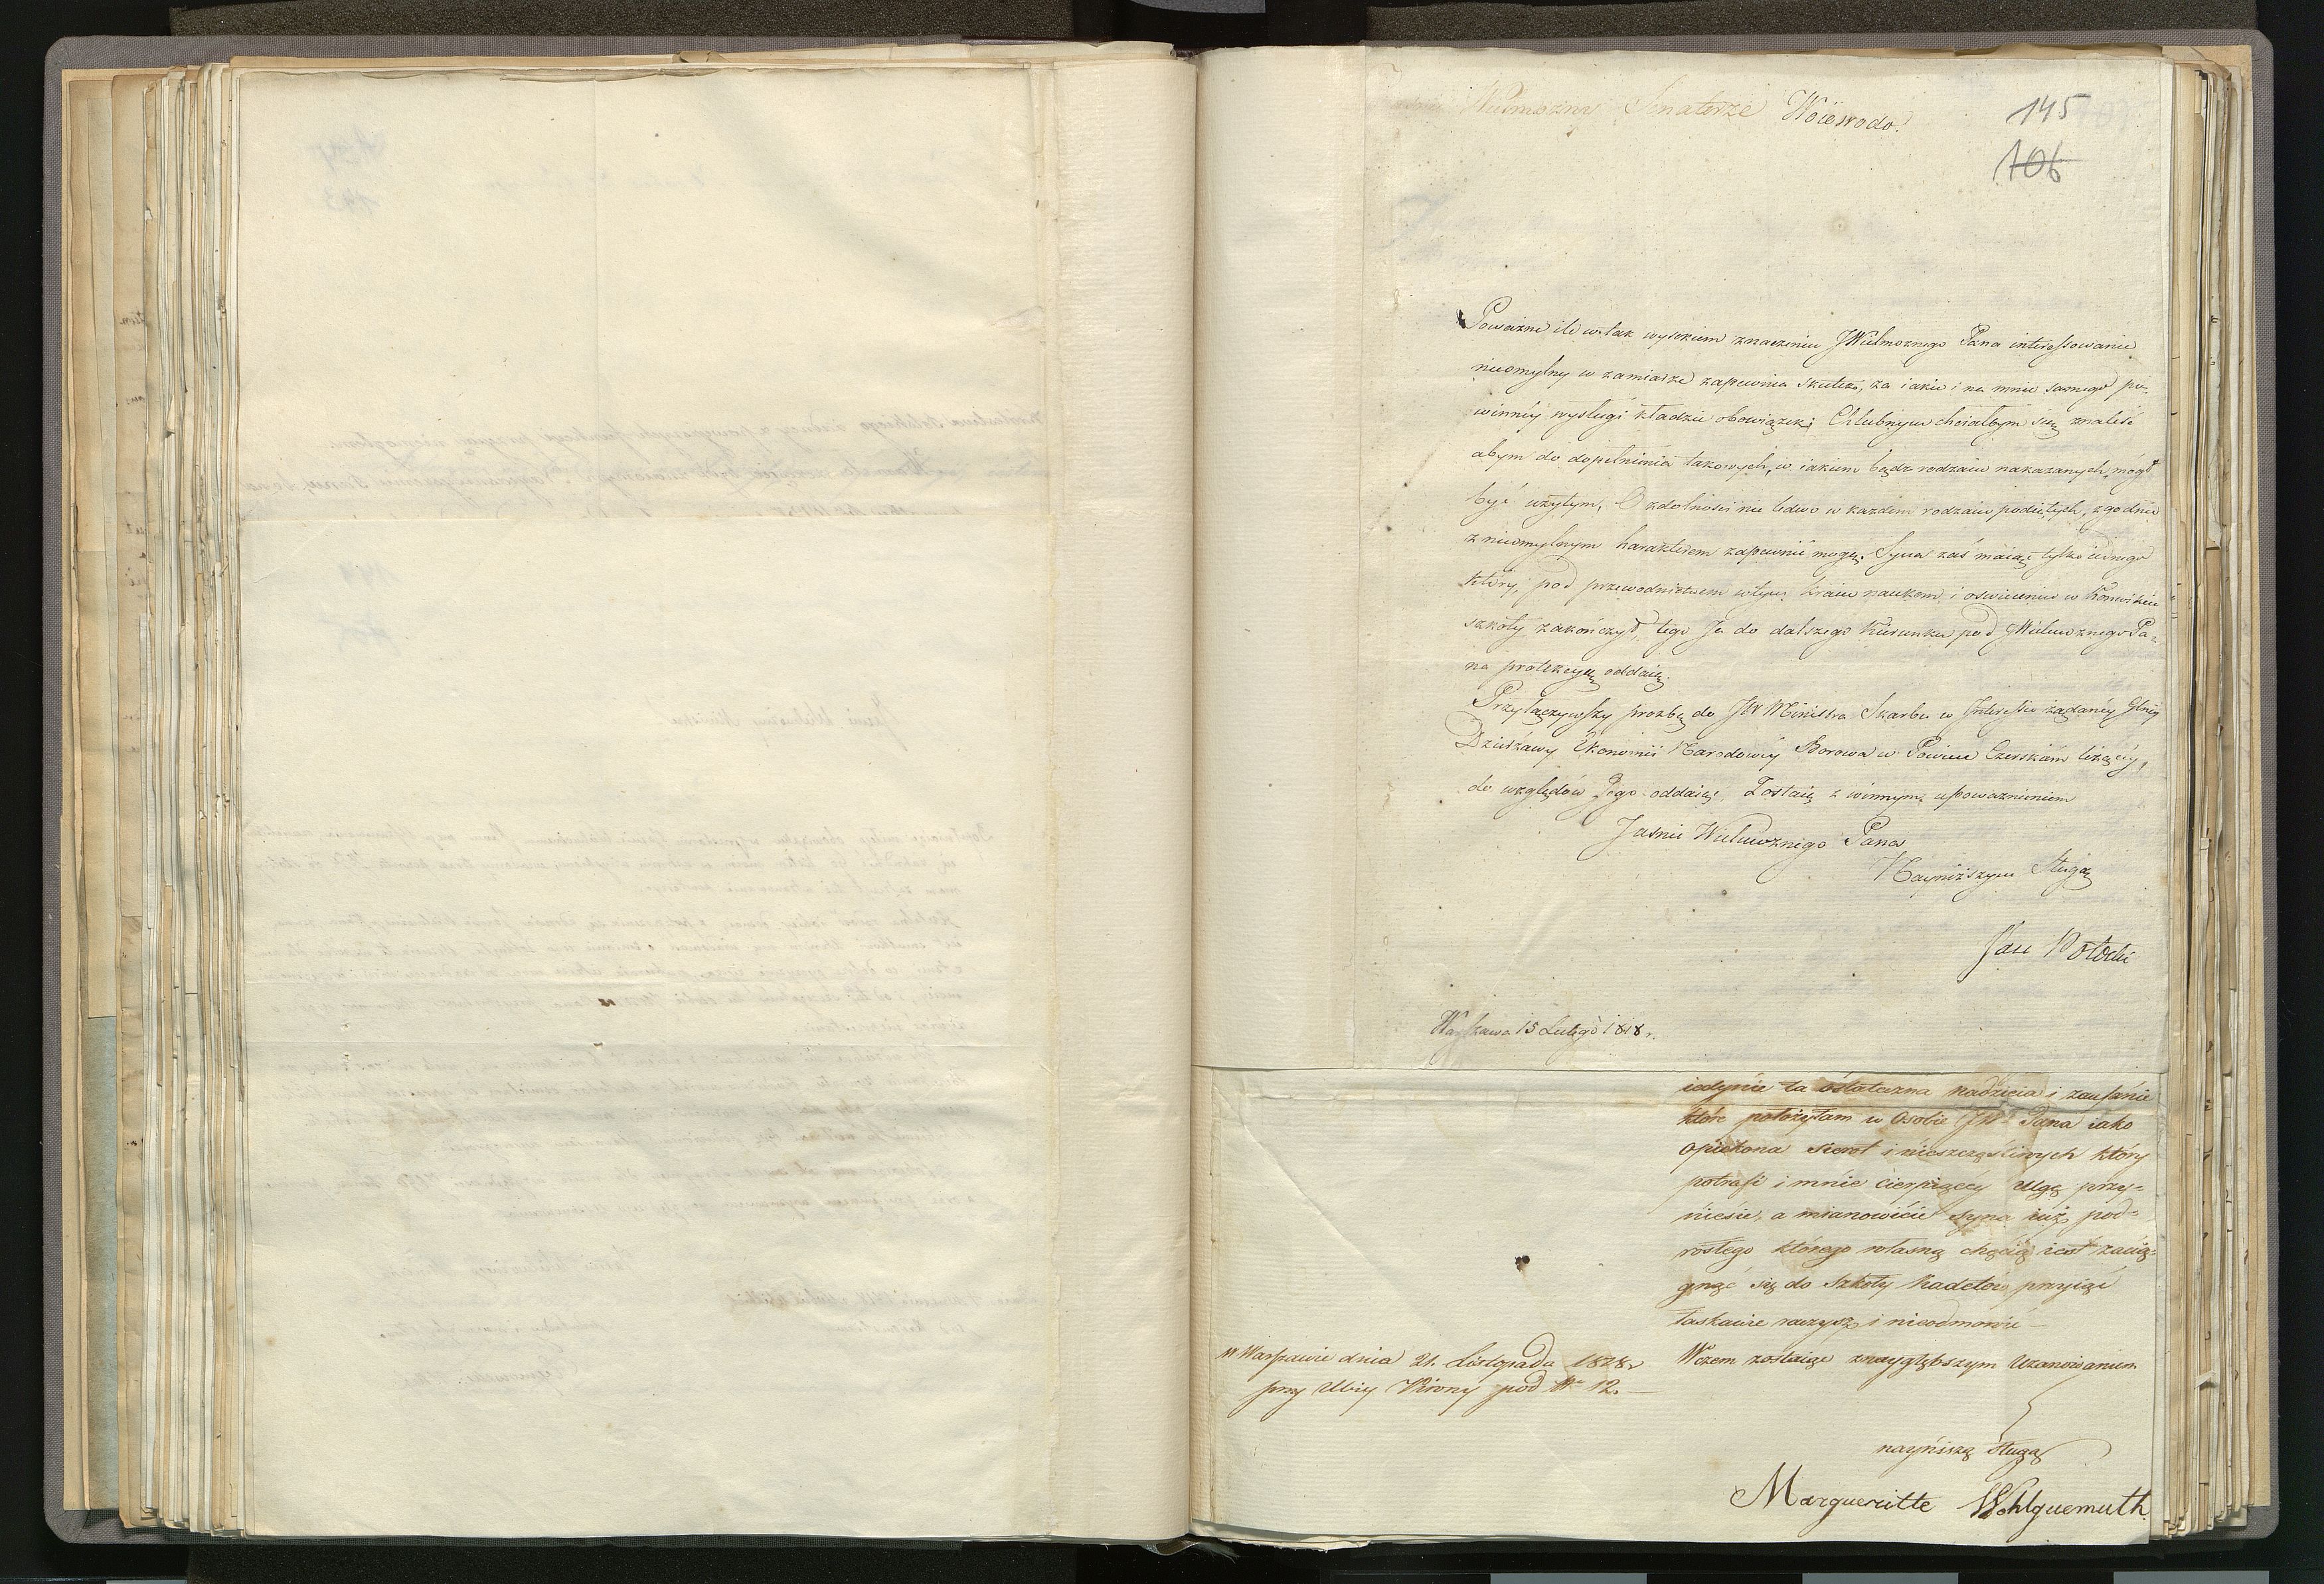 Wielmożny Senatorze Woiewodo.
145
106
Poważne ile w tak wysokim znaczeniu JWielmożnego Pana interessowanie
nieomylny w zamiarze zapewnia skutek, za iakie i na mnie samego po-
winnéy wysługi kładzie obowiązek; Chlubnym chciałbym się znaleść
abym do dopełnienia takowych, w iakim bądz rodzaiu nakazanych, mógł
być użytym, O zdolności nie ledwo w każdem rodzaiu podiętych, zgodnie
z nieomylnym harakterem zapewnić mogę. Syna zaś maiąc tylko iednego
który, pod przewodnictwem w tym kraiu naukom i oswieceniu w Konwikcie
szkoły zakończył, tego Ja do dalszego kierunku pod JWielmożnego Pa-
na protekcyę oddaię.
Przyłączywszy prozbę do JW Ministra Skarbu w Interessie żądanéy
Dzierżawy Ekonomii Narodowéy Borowa w Powiecie Czerskim leżącéy,
do względów Jego oddaiąc, Zostaię z winnym uszanowaniem
Jasnie Wielmożnego Pana
Nayniższym Sługą
Jan Potocki
Warszawa 15 Lutego 1818 r.
iedynie ta ostateczna nadzieia i zaufanie
które położyłam w Osobie JWo Pana iako
Opiekona sierot i nieszczęśliwych który
potrafi i mnie cierpiącey ulgę przy-
niesie, a mianowicie syna iuż pod-
rosłego którego własną chęcią iest zacią-
gnąć się do Szkoły Kadetow przyiąć
łaskawie raczysz i nieodmowić —
W Warszawie dnia 21. Listopada 1828 r
przy Ulicy pod No 12. —
Wczem zostaiąc znaygłębszym Uzanowaniem
nayniszą sługą
Margueritte Wohlguemuth